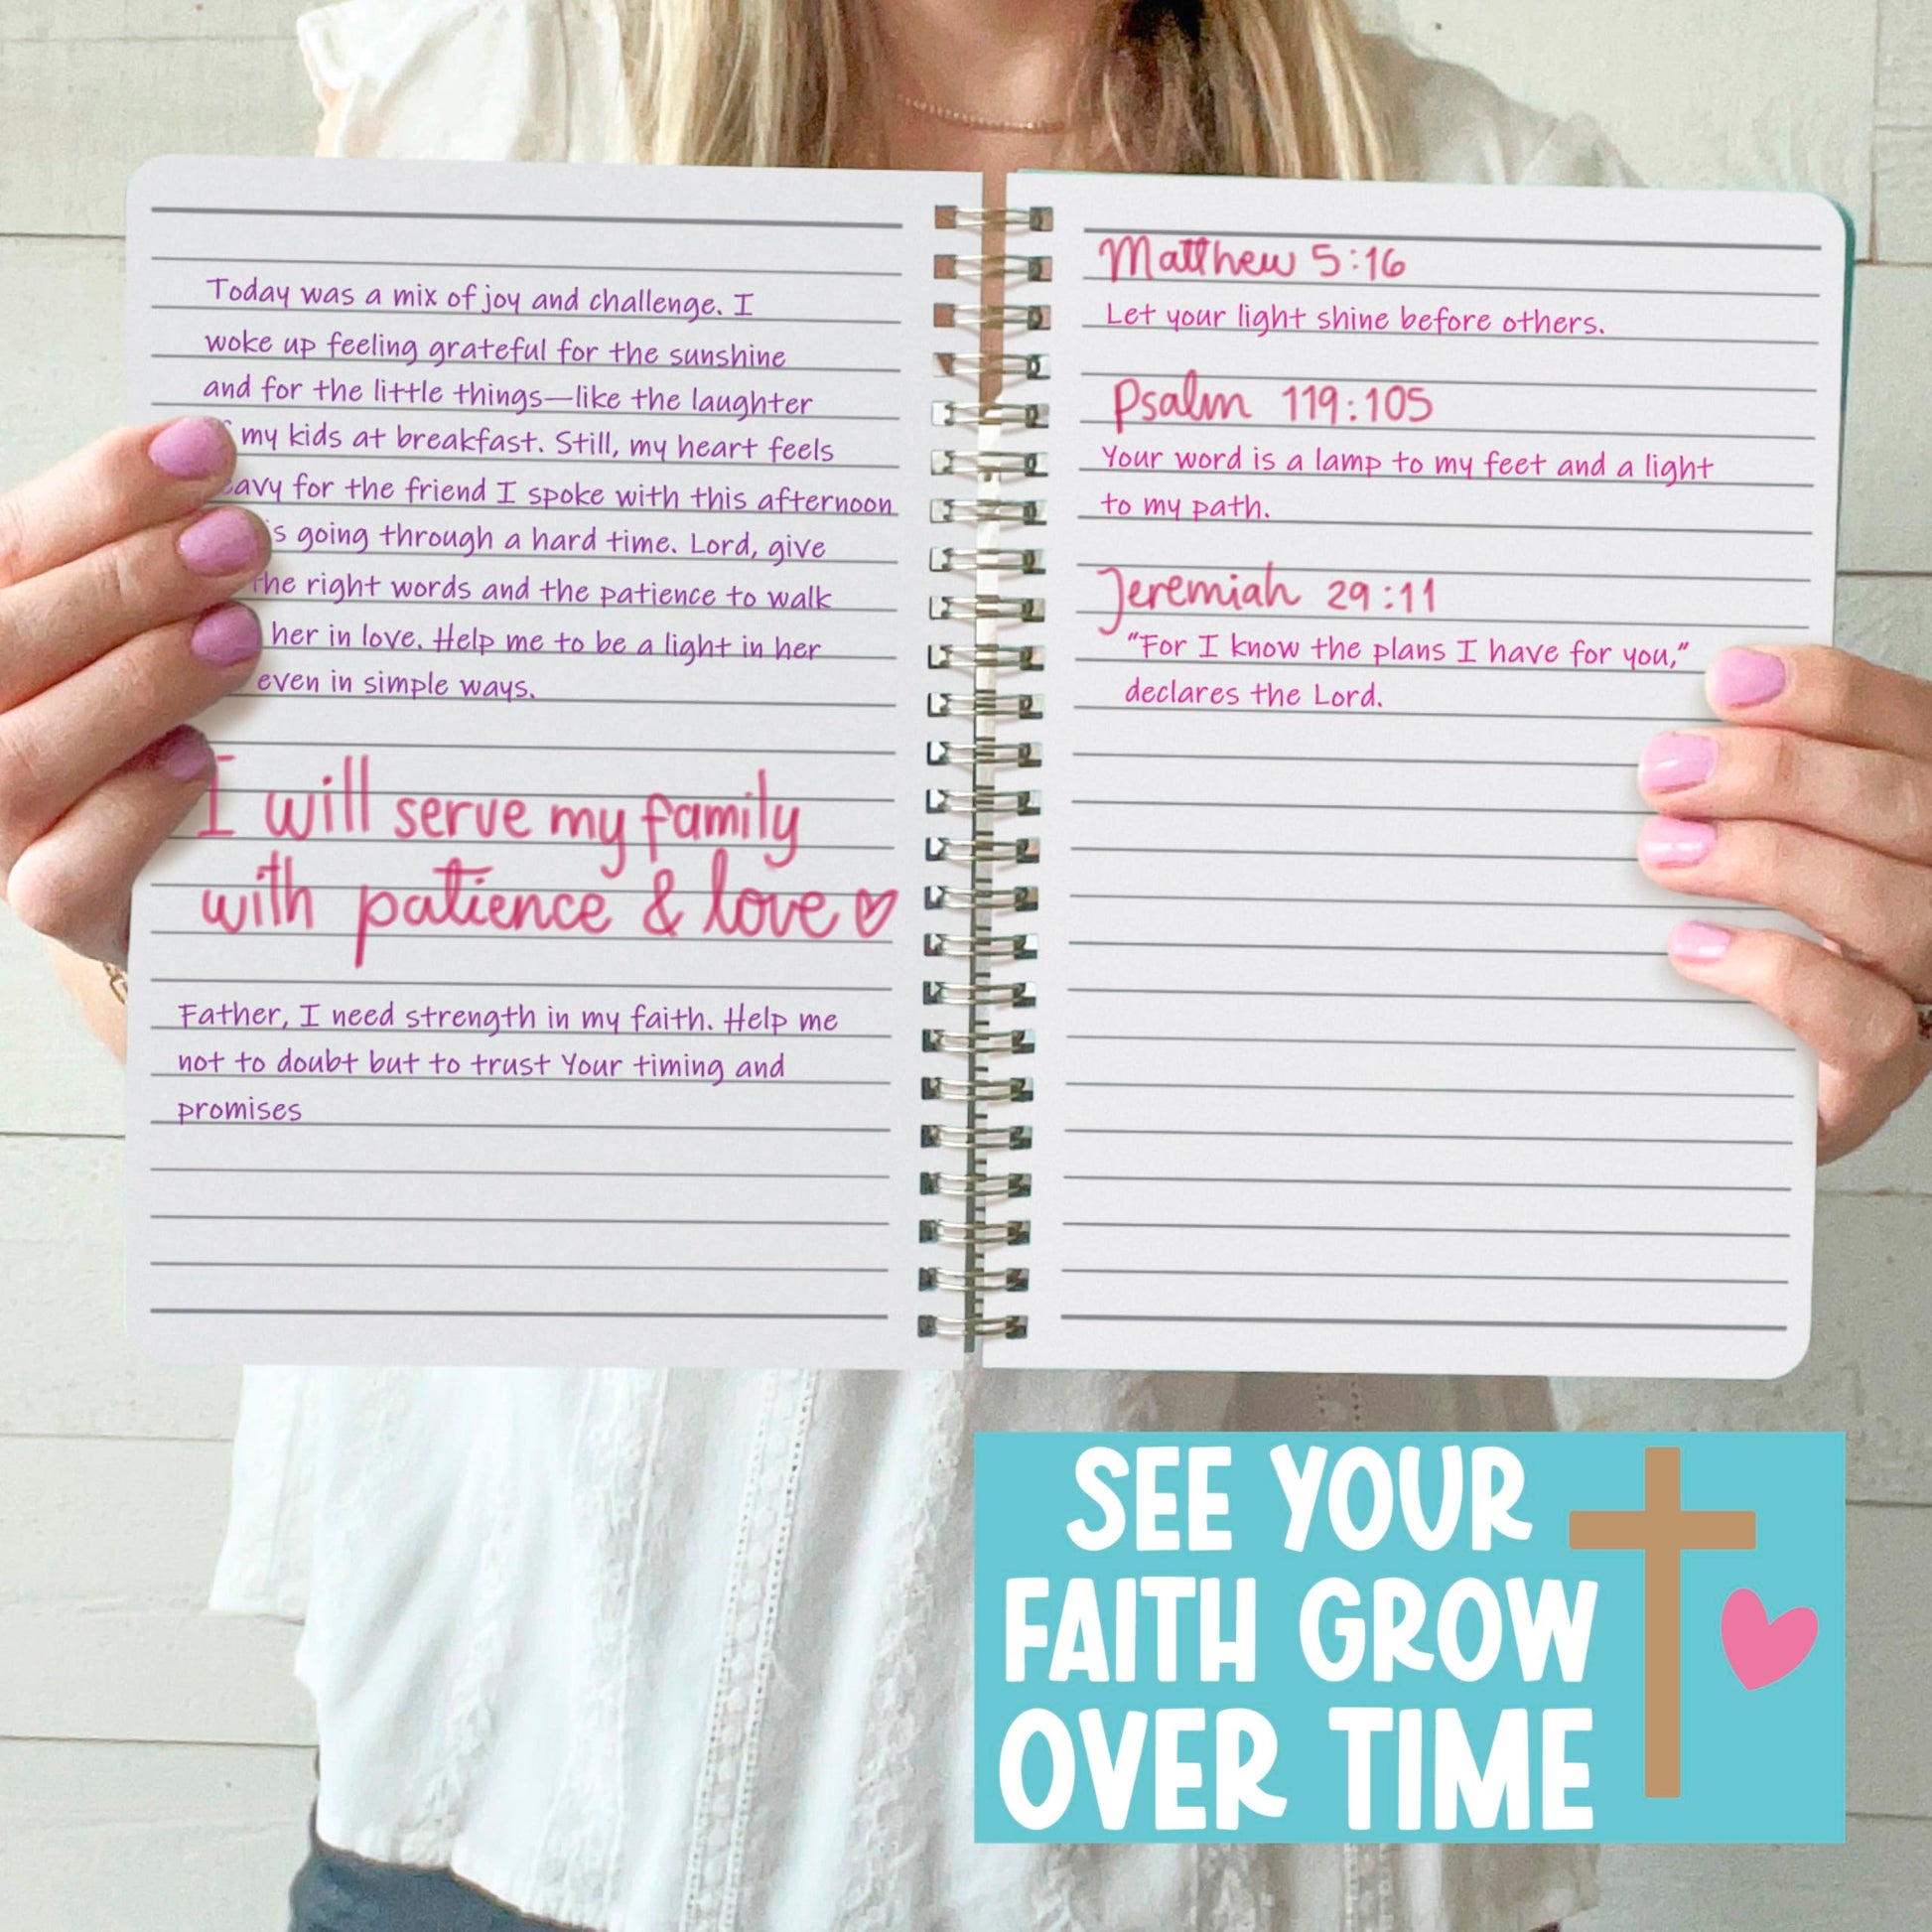 Today was a mix of joy and challenge. I
woke up feeling grateful for the sunshine
and for the little things—like the laughter
my kids at breakfast. Still, my heart feels
for the friend I spoke with this afternoon
going through a hard time. Lord, give
the right words and the patience to walk
her in love. Help me to be a light in her
even in simple ways.
I will serve my family
with patience & love ♡
Father, I need strength in my faith. Help me
not to doubt but to trust Your timing and
promises
Matthew 5:16
Let your light shine before others.
Psalm 119:105
Your word is a lamp to my feet and a light
to my path.
Jeremiah 29:11
"For I know the plans I have for you,"
declares the Lord.
SEE YOUR
FAITH GROW
OVER TIME